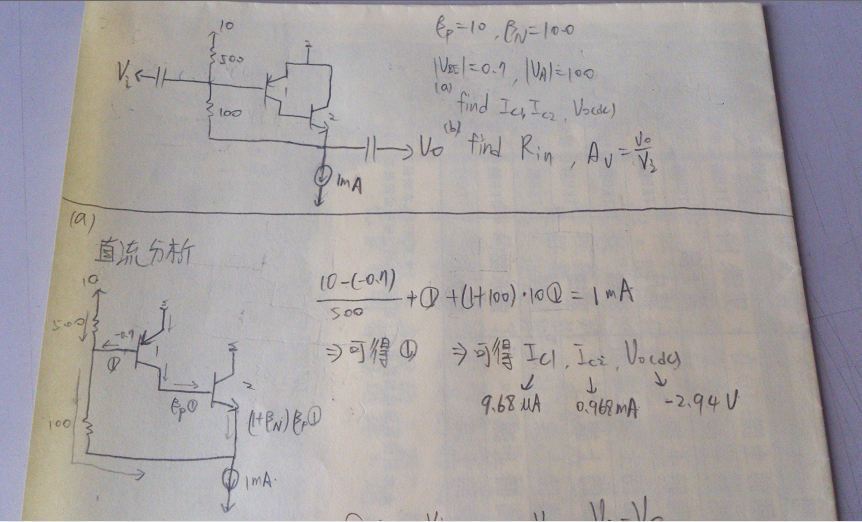 10
500
V₂
100
1
2
1mA
Vo
βp=10, βN=100
|VBE|=0.7, |VA|=100
(a) find Ic1, Ic2, Vo(dc)
(b) find Rin, Av=Vo/Vi
(a)
直流分析
10
500
-0.7
①
1
2
βp①
(1+βN)βp①
100
1mA
(10-(-0.7))/500 + ① + (1+100)·10① = 1mA
⇒可得① ⇒可得 Ic1, Ic2, Vo(dc)
9.68 μA 0.968mA -2.94V